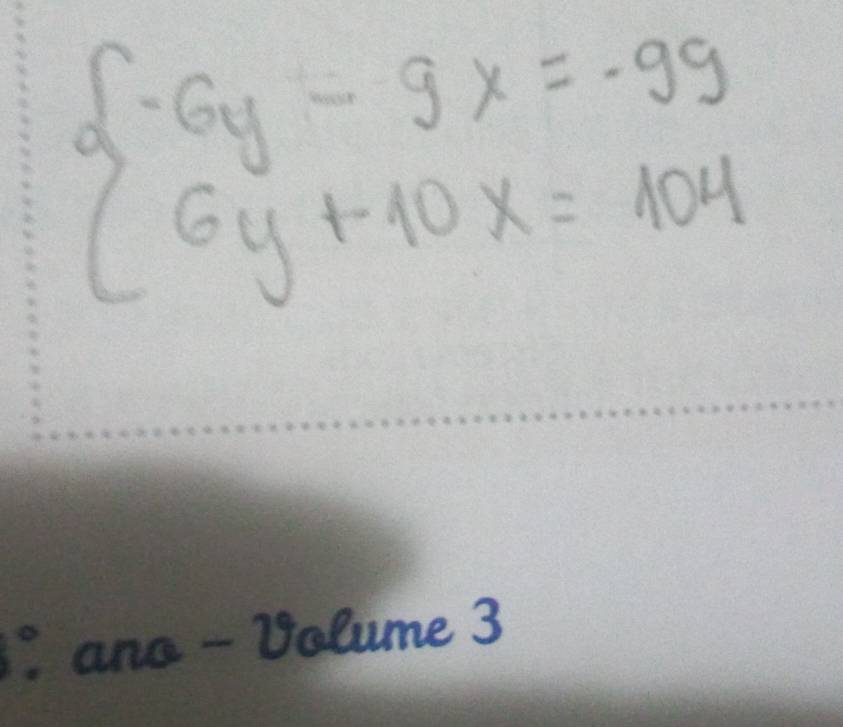 -6y - 9x = -99
6y + 10x = 104
ano - Volume 3